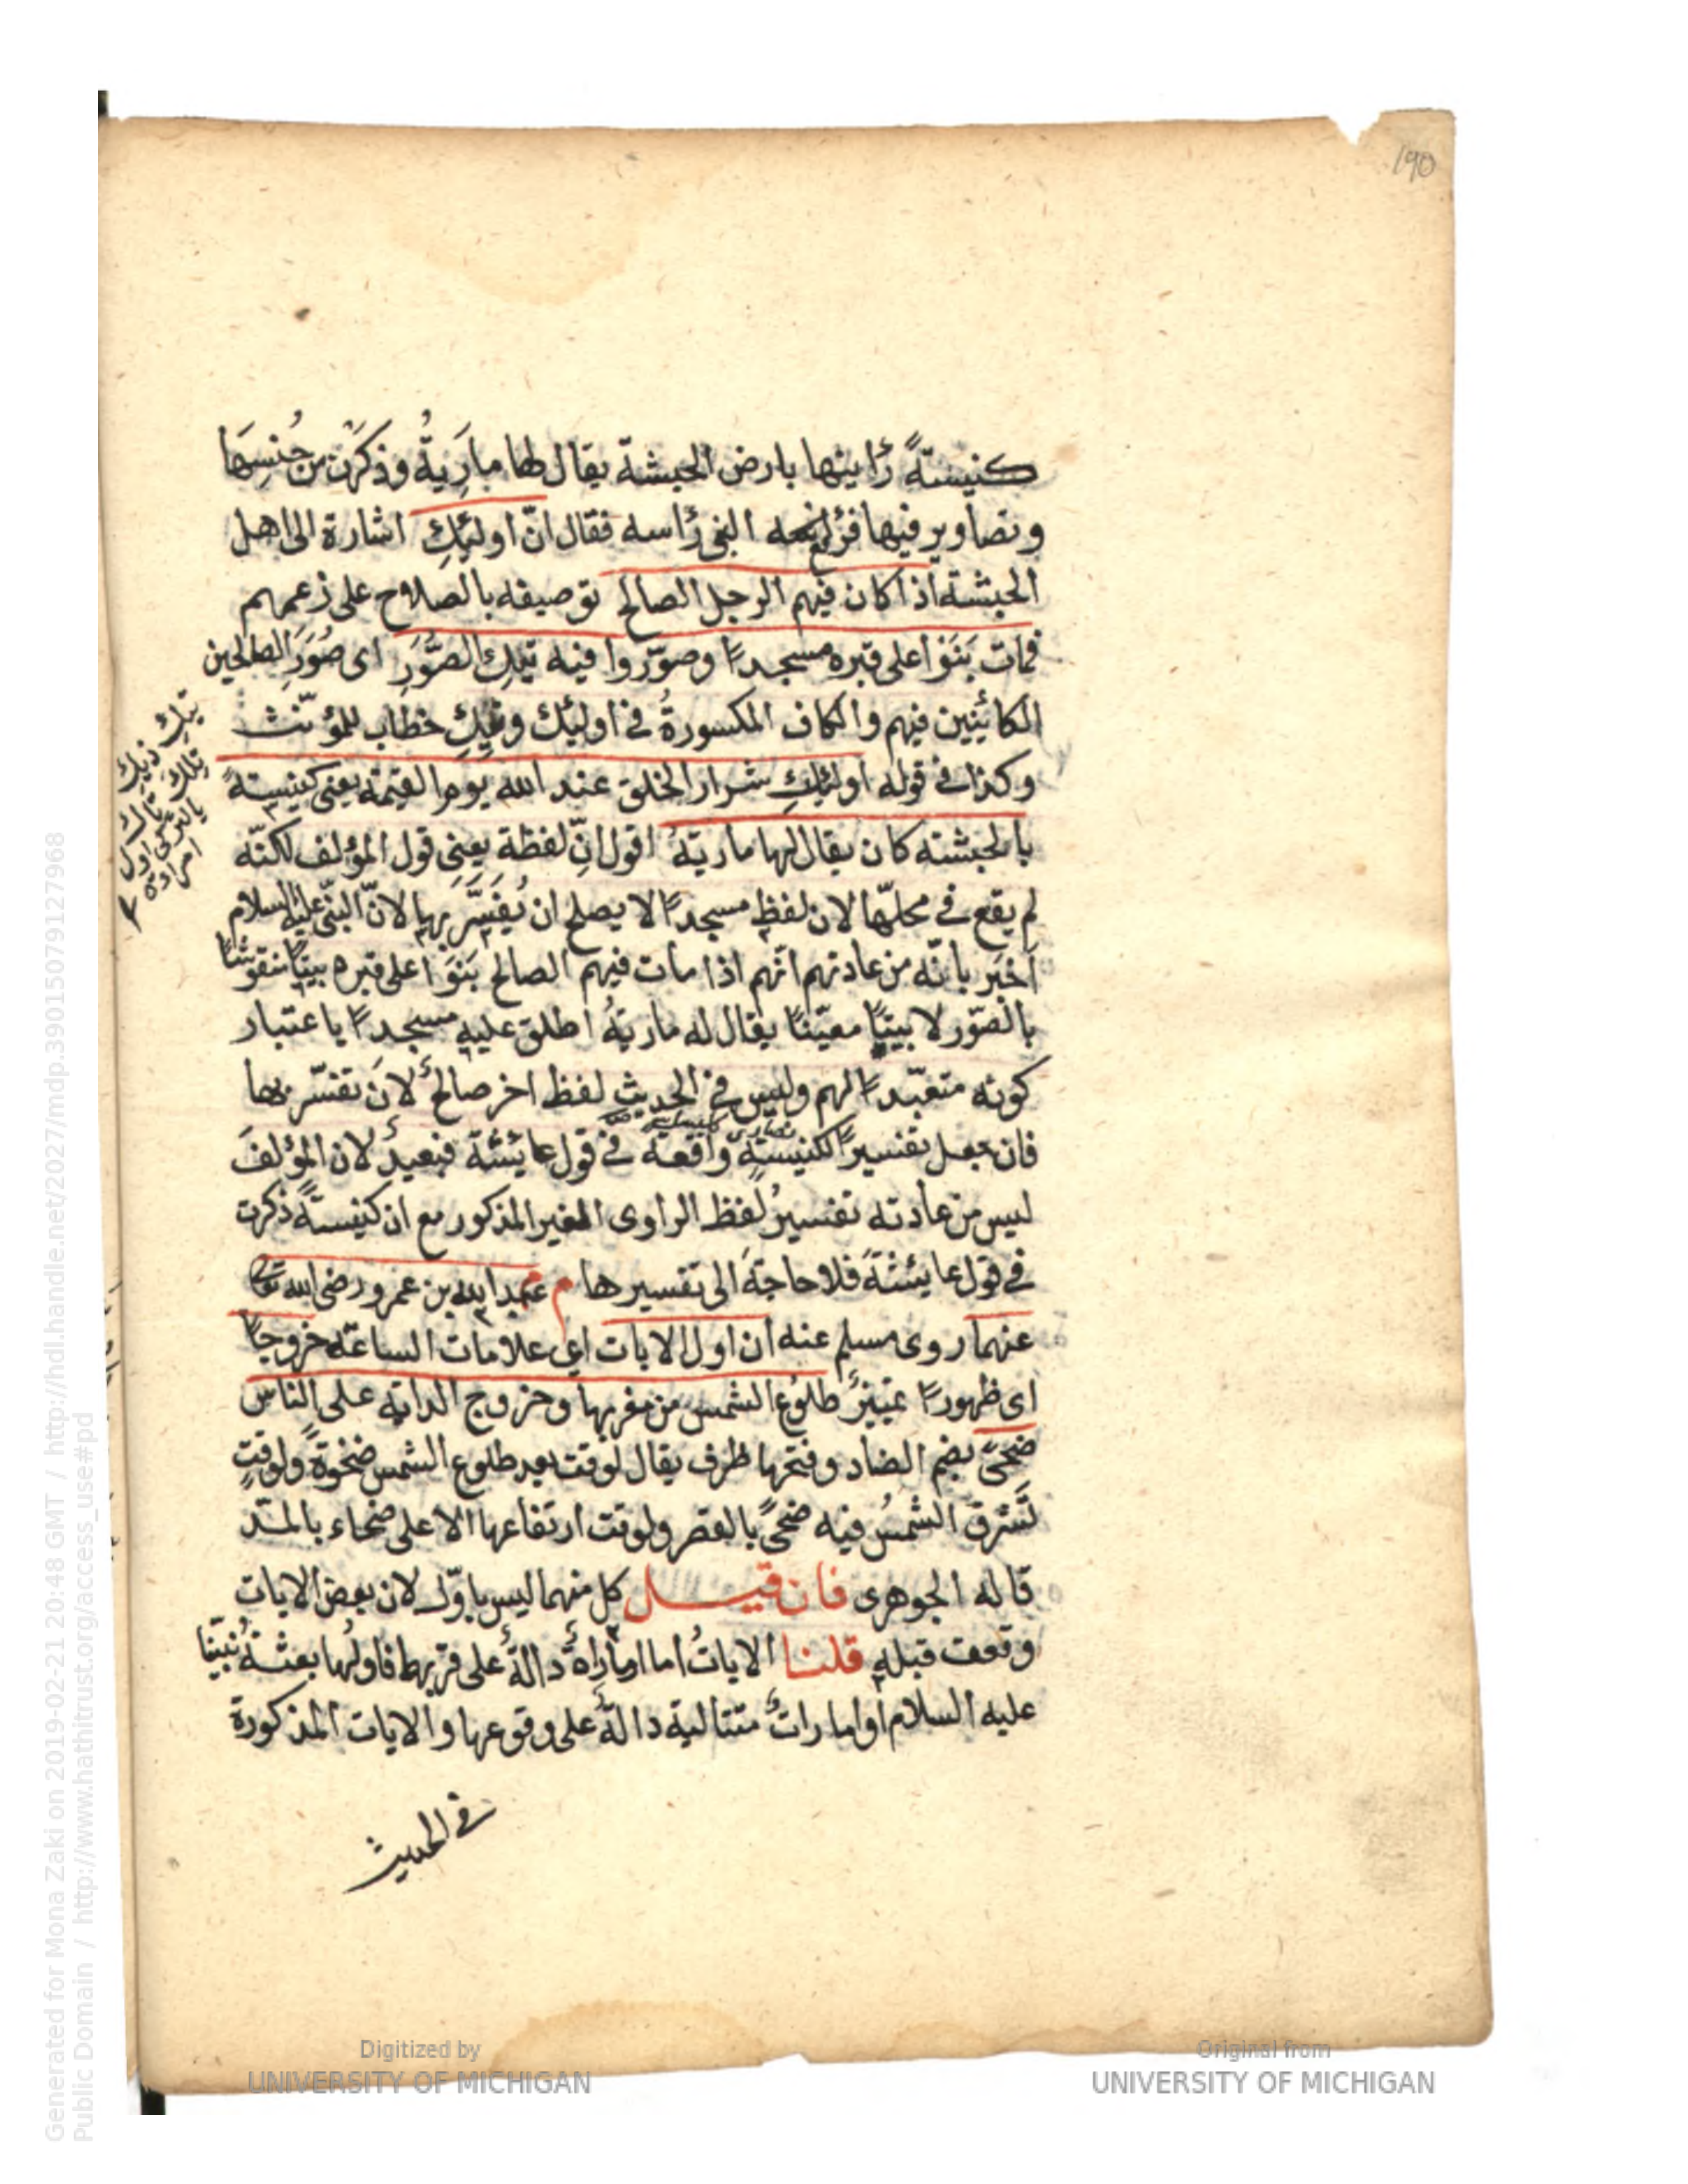 190
كنيسةً رأينها بارض الحبشة يقال لها مارِيَةُ وذكرت من حُسنِهَا
وتصاوير فيها فرفع النبى رأسه فقال انّ اولئِكِ اشارة الى اهل
الحبشة اذا كان فيهم الرجل الصالح توصيفه بالصلاح على زعمهم
فمات بَنَوْا على قبره مسجدًا وصوّروا فيه تِيكِ الصُّوَرِ اى صُوَرَ الصالحين
الكائنين فيهم والكاف المكسورةُ فى اوليك وتِيكِ خطاب للمؤنّث
وكذا فى قوله اولئِكِ شرار الخلق عند الله يوم القيمة يعنى كنيسةً
بالحبشة كان يقال لها مارية اقول انّ لفظة يعنِى قول المؤلف لكنّه
لم يقع فى محلّها لان لفظ مسجدًا لا يصلح ان يُفَسَّر بها لانّ النبىّ عليه السلام
اَخبَر بانّه من عادتهم انّهم اذا مات فيهم الصالح بَنَوْا على قبره بيتًا منقوشًا
بالصّور لا بيتًا معيّنًا يقال له ماريةُ اطلق عليه مسجدًا باعتبار
كونه متعبّدًا لهم وليس فى الحديث لفظ اخر صالحٌ لانَ تفسّر بها
فان جعل تفسيرًا لكنيسة واقعة فى قول عايشة فبعيدٌ لان المؤلفَ
ليس من عادته تفسيرُ لفظ الراوى الغير المذكور مع ان كنيسةً ذكرت
فى قول عايشةَ فلا حاجةَ الى تفسيرها م عبد الله بن عمرو رضى الله تعالى
عنهما روى مسلم عنه ان اول الايات اى علامات الساعة خروجًا
اى ظهورًا تمييزٌ طلوعُ الشمس من مغربها وخروج الدابة على الناس
ضحىً بضم الضاد وفتحها ظرف يقال لوقت بعد طلوع الشمس ضحوةً ولوقتٍ
تَشرق الشمسُ فيه ضحىً بالقصر ولوقت ارتفاعها الاعلى ضحاء بالمدّ
قاله الجوهرى فان قيل كل منهما ليس باوّل لان بعض الايات
وقعت قبله قلنا الاياتُ اما اماراةٌ دالةٌ على قربها فاولُها بعثةُ نبيّنا
عليه السلام او اماراتٌ متتالية دالةٌ على وقوعها والايات المذكورة
فى الحديث
تيك ذيك
تلك تاك
Generated for Mona Zaki on 2019-02-21 20:48 GMT / http://hdl.handle.net/2027/mdp.39015079127968
Public Domain / http://www.hathitrust.org/access_use#pd
Digitized by
UNIVERSITY OF MICHIGAN
Original from
UNIVERSITY OF MICHIGAN